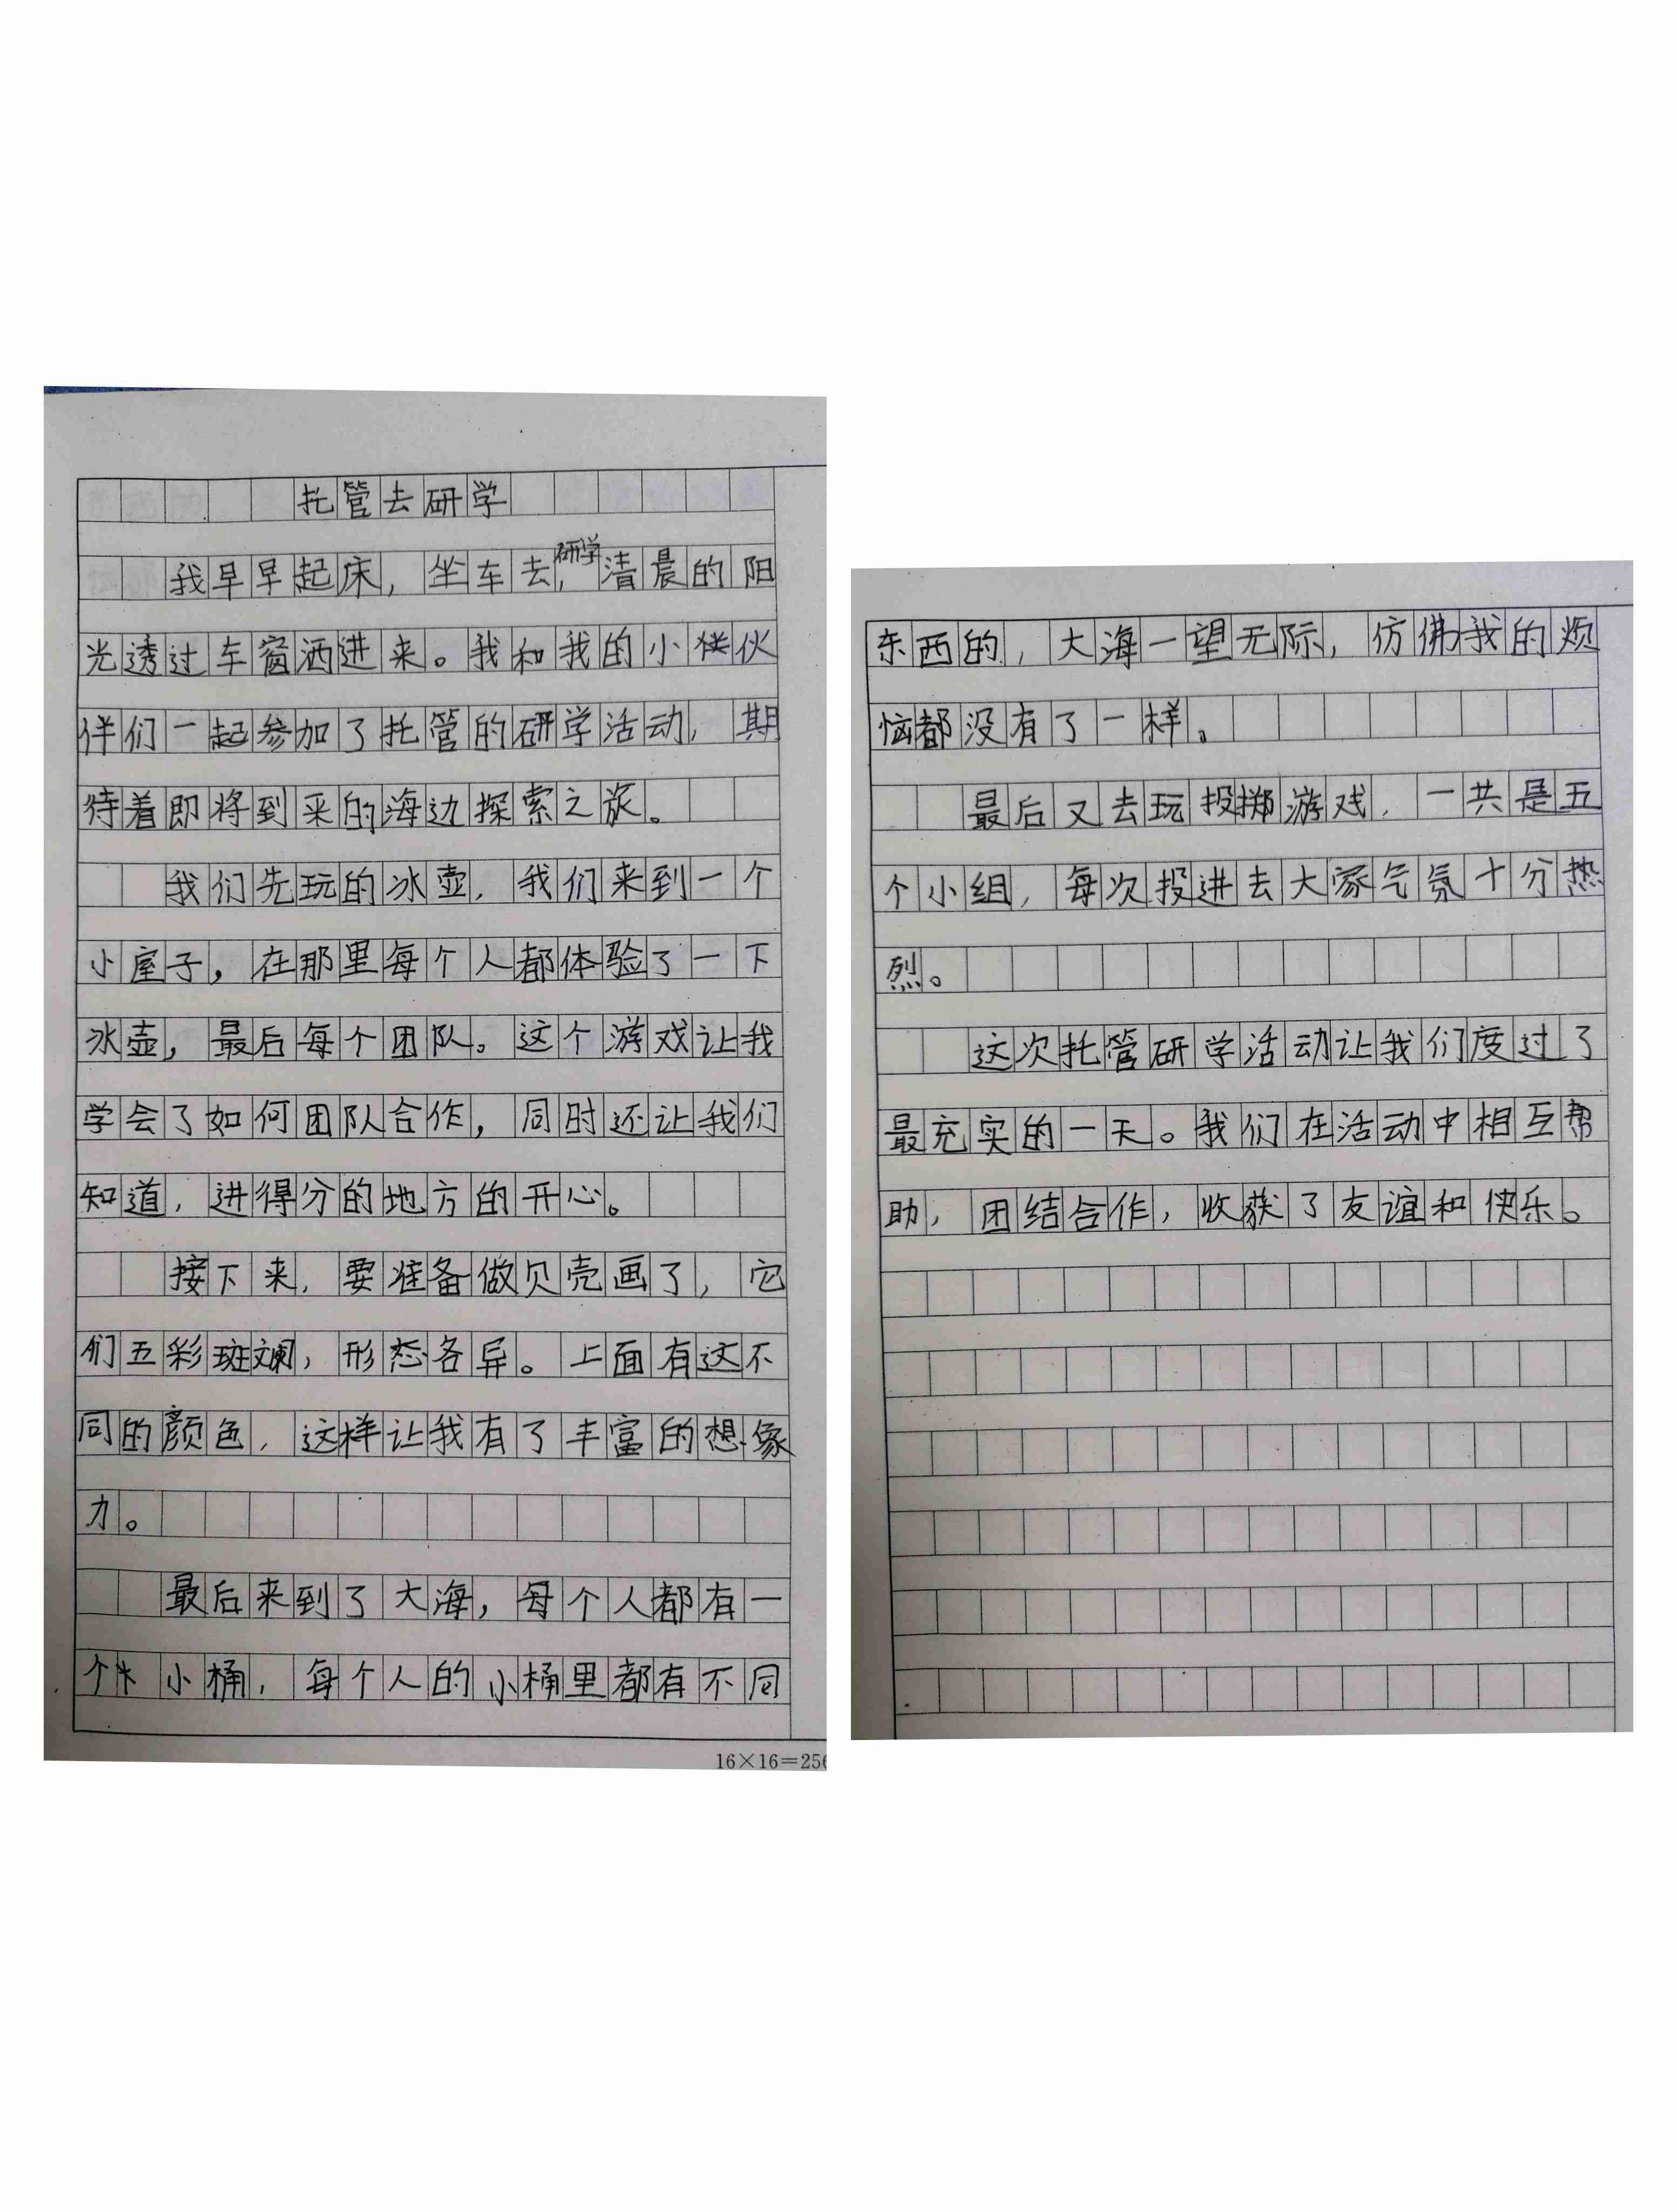 托管去研学
我早早起床，坐车去研学，清晨的阳
光透过车窗洒进来。我和我的小伙
伴们一起参加了托管的研学活动，期
待着即将到来的海边探索之旅。
我们先玩的冰壶，我们来到一个
小屋子，在那里每个人都体验了一下
冰壶，最后每个团队。这个游戏让我
学会了如何团队合作，同时还让我们
知道，进得分的地方的开心。
接下来，要准备做贝壳画了，它
们五彩斑斓，形态各异。上面有这不
同的颜色，这样让我有了丰富的想像
力。
最后来到了大海，每个人都有一
个小桶，每个人的小桶里都有不同
东西的，大海一望无际，仿佛我的烦
恼都没有了一样。
最后又去玩投掷游戏，一共是五
个小组，每次投进去大家气氛十分热
烈。
这次托管研学活动让我们度过了
最充实的一天。我们在活动中相互帮
助，团结合作，收获了友谊和快乐。
16×16=256